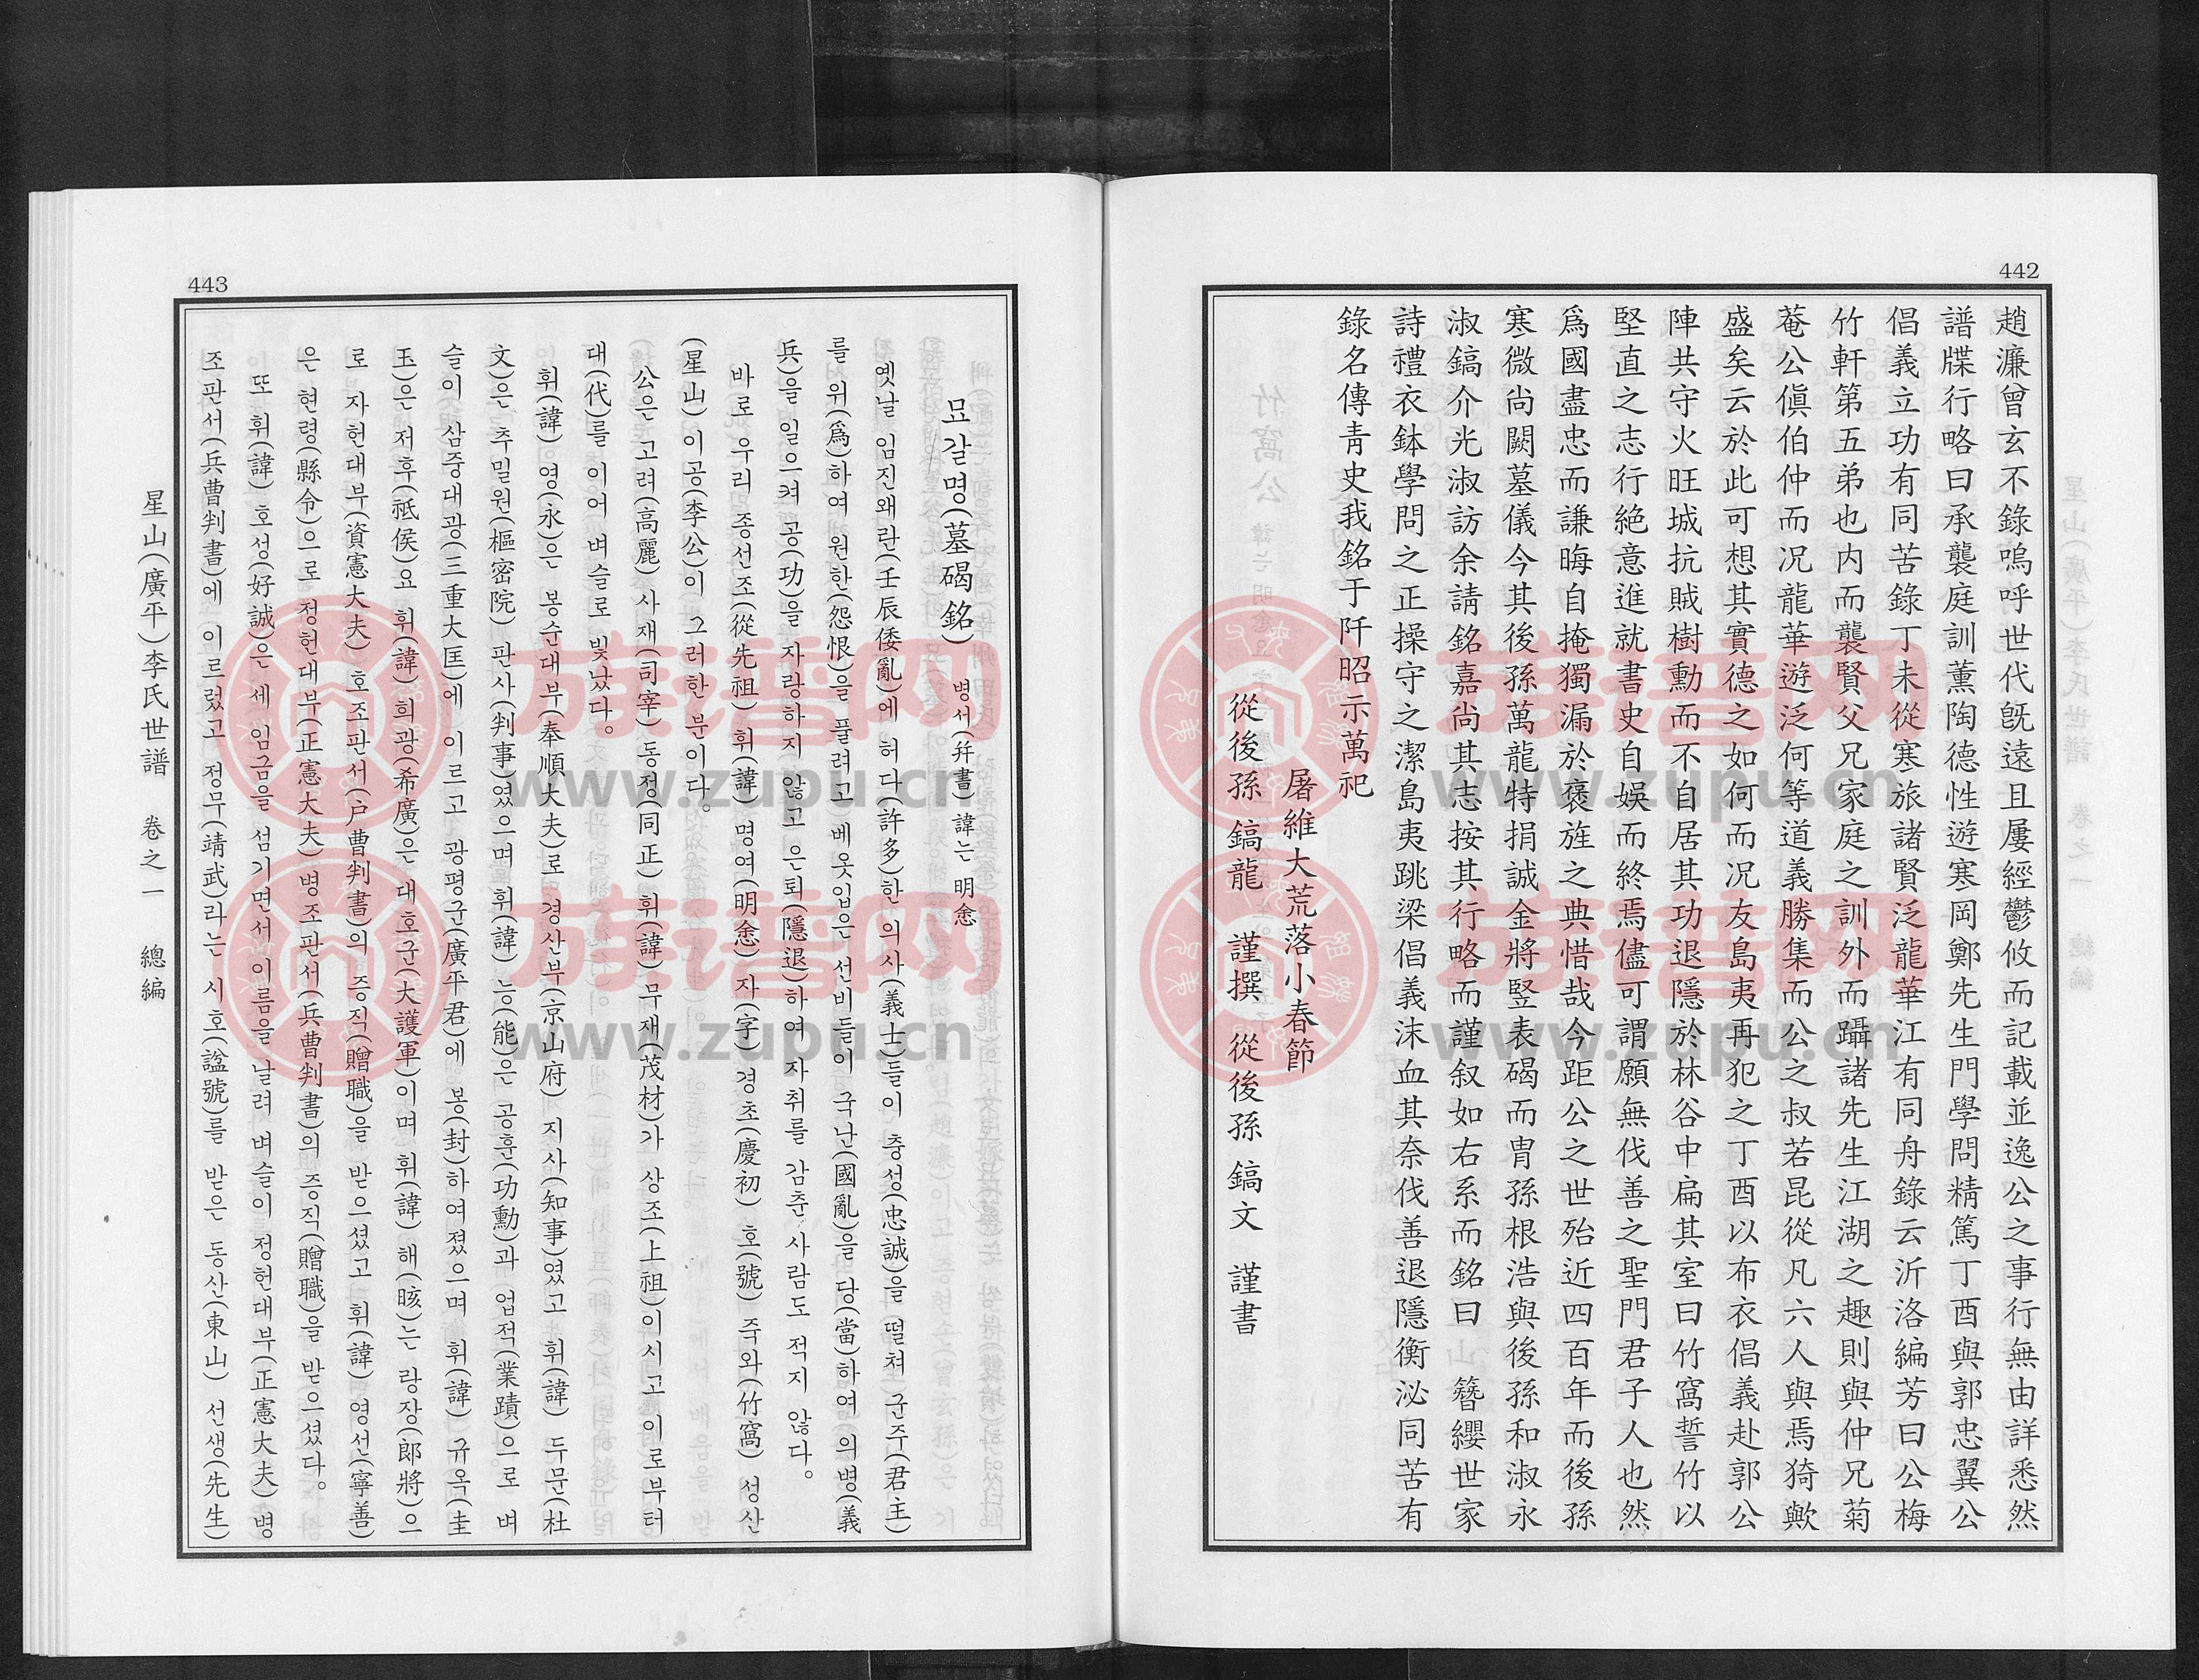 442
趙濂曾玄不錄嗚呼世代旣遠且屢經鬱攸而記載並逸公之事行無由詳悉然
譜牒行略曰承襲庭訓薰陶德性遊寒岡鄭先生門學問精篤丁酉與郭忠翼公
倡義立功有同苦錄丁未從寒旅諸賢泛龍華江有同舟錄云沂洛編芳曰公梅
竹軒第五弟也内而襲賢父兄家庭之訓外而躡諸先生江湖之趣則與仲兄菊
菴公愼伯仲而况龍華遊泛何等道義勝集而公之叔若昆從凡六人與焉猗歟
盛矣云於此可想其實德之如何而况友島夷再犯之丁酉以布衣倡義赴郭公
陣共守火旺城抗賊樹勳而不自居其功退隱於林谷中扁其室曰竹窩誓竹以
堅直之志行絶意進就書史自娛而終焉儘可謂願無伐善之聖門君子人也然
爲國盡忠而謙晦自掩獨漏於褒旌之典惜哉今距公之世殆近四百年而後孫
寒微尙闕墓儀今其後孫萬龍特捐誠金將竪表碣而冑孫根浩與後孫和淑永
淑鎬介光淑訪余請銘嘉尙其志按其行略而謹叙如右系而銘曰 簪纓世家
詩禮衣鉢學問之正操守之潔島夷跳梁倡義沫血其奈伐善退隱衡泌同苦有
錄名傳靑史我銘于阡昭示萬祀
屠維大荒落小春節
從後孫 鎬龍 謹撰 從後孫 鎬文 謹書
443
묘갈명(墓碣銘) 병서(幷書) 諱는 明悆
옛날 임진왜란(壬辰倭亂)에 허다(許多)한 의사(義士)들이 충성(忠誠)을 떨쳐 군주(君主)
를 위(爲)하여 원한(怨恨)을 풀려고 베옷입은 선비들이 국난(國亂)을 당(當)하여 의병(義
兵)을 일으켜 공(功)을 자랑하지 않고 은퇴(隱退)하여 자취를 감춘 사람도 적지 않다。
바로 우리 종선조(從先祖) 휘(諱) 명여(明悆) 자(字) 경초(慶初) 호(號) 죽와(竹窩) 성산
(星山) 이공(李公)이 그러한 분이다。
공은 고려(高麗) 사재(司宰) 동정(同正) 휘(諱) 무재(茂材)가 상조(上祖)이시고 이로부터
대(代)를 이어 벼슬로 빛났다。
휘(諱) 영(永)은 봉순대부(奉順大夫)로 경산부(京山府) 지사(知事)였고 휘(諱) 두문(杜
文)은 추밀원(樞密院) 판사(判事)였으며 휘(諱) 능(能)은 공훈(功勳)과 업적(業蹟)으로 벼
슬이 삼중대광(三重大匡)에 이르고 광평군(廣平君)에 봉(封)하여졌으며 휘(諱) 규옥(圭
玉)은 저후(祗侯)요 휘(諱) 희광(希廣)은 대호군(大護軍)이며 휘(諱) 해(晐)는 랑장(郞將)으
로 자헌대부(資憲大夫) 호조판서(戶曹判書)의 증직(贈職)을 받으셨고 휘(諱) 영선(寧善)
은 현령(縣令)으로 정헌대부(正憲大夫) 병조판서(兵曹判書)의 증직(贈職)을 받으셨다。
또 휘(諱) 호성(好誠)은 세 임금을 섬기면서 이름을 날려 벼슬이 정헌대부(正憲大夫) 병
조판서(兵曹判書)에 이르렀고 정무(靖武)라는 시호(諡號)를 받은 동산(東山) 선생(先生)
星山(廣平)李氏世譜 卷之一 總編
族谱网
www.zupu.cn
族谱网
www.zupu.cn
族谱网
www.zupu.cn
族谱网
www.zupu.cn